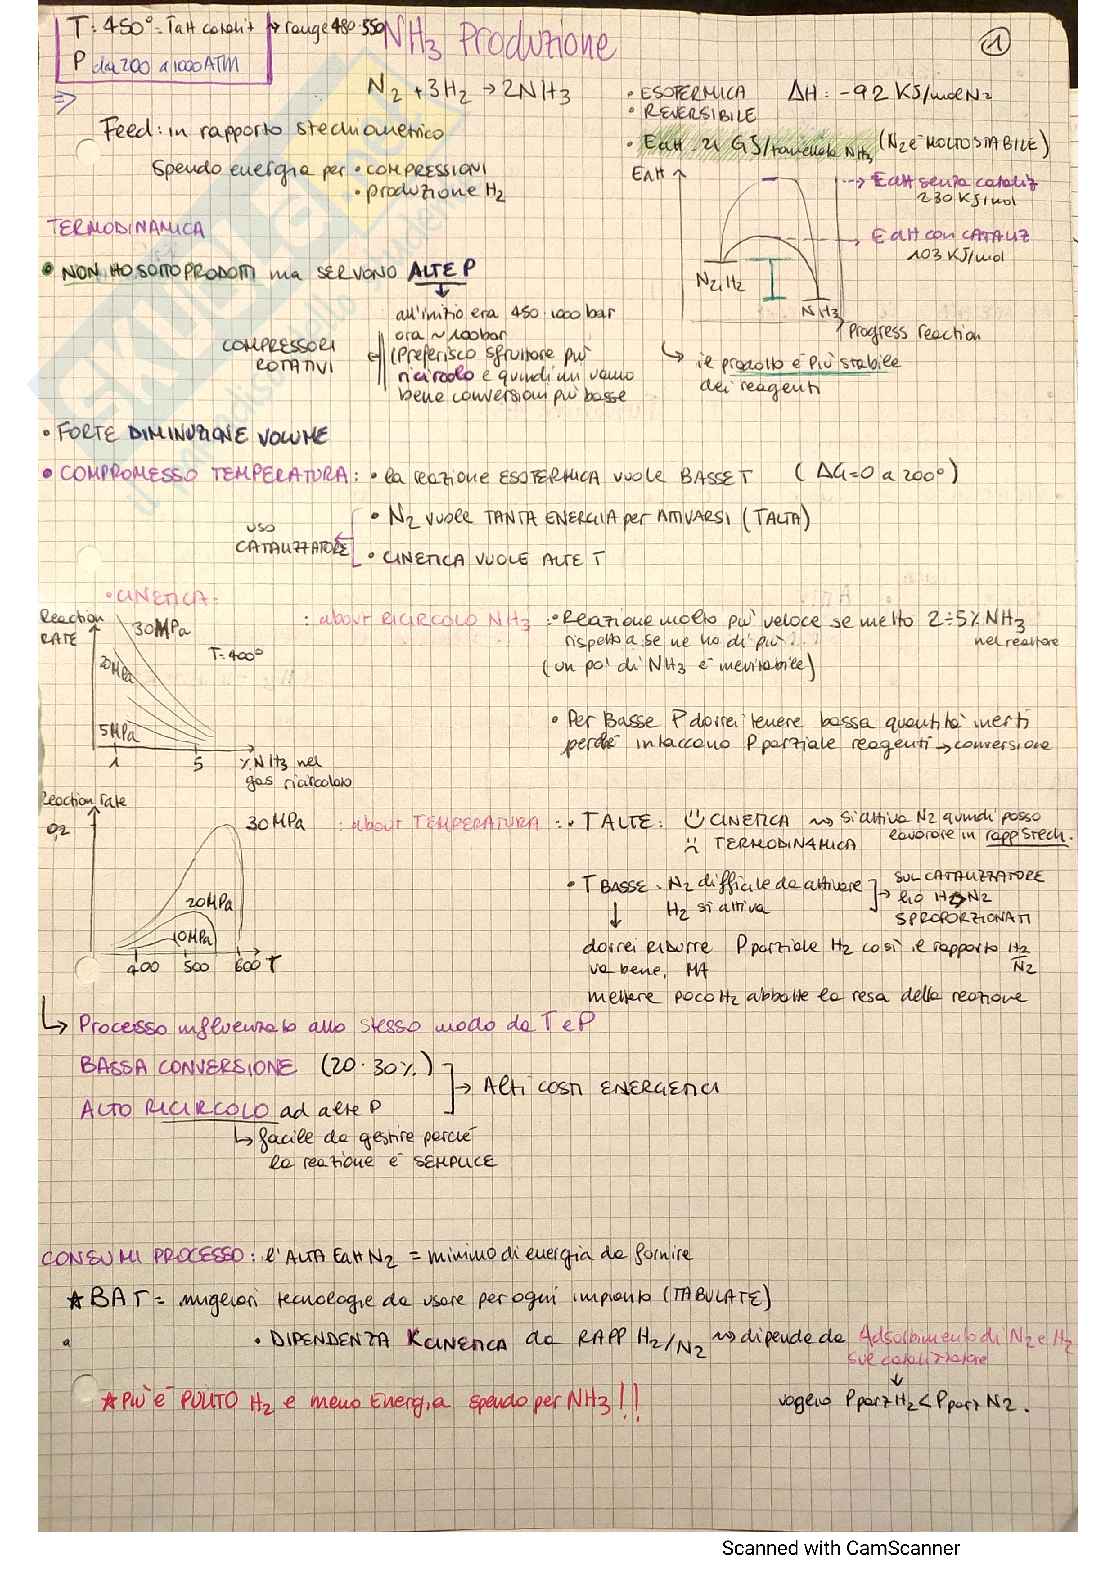 T: 450° = Tatt cataliz → range 480-550
P da 200 a 1000 ATM
NH3 Produzione
1
N2 + 3H2 → 2NH3
• ESOTERMICA ΔH: -92 KJ/mol N2
• REVERSIBILE
⇒ Feed: in rapporto stechiometrico
• Eatt 21 GJ/tonnellata NH3 (N2 è MOLTO STABILE)
Spendo energia per • COMPRESSIONI
• produzione H2
Eatt
→ Eatt senza cataliz
230 KJ/mol
→ Eatt con CATALIZ
103 KJ/mol
N2, H2
NH3
Progress reaction
↳ il prodotto è più stabile
dei reagenti
TERMODINAMICA
• NON HO SOTTOPRODOTTI ma SERVONO ALTE P
all'inizio era 450-1000 bar
ora ~ 100bar
(Preferisco sfruttare più
ricircolo e quindi mi vanno
bene conversioni più basse
COMPRESSORI
ROTATIVI
• FORTE DIMINUZIONE VOLUME
• COMPROMESSO TEMPERATURA: • la reazione ESOTERMICA VUOLE BASSE T (ΔG=0 a 200°)
• N2 VUOLE TANTA ENERGIA per ATTIVARSI (T ALTA)
USO
CATALIZZATORE
• CINETICA VUOLE ALTE T
• CINETICA:
Reaction
RATE
30MPa
20MPa
5MPa
T=400°
1 5
% NH3 nel
gas ricircolato
: about RICIRCOLO NH3 : • Reazione molto più veloce se metto 2÷5% NH3
nel reattore
rispetto a se ne ho di più
(un po' di NH3 è inevitabile)
• Per Basse P dovrei tenere bassa quantità inerti
perché intaccano P parziale reagenti → conversione
Reaction rate
0,2
30 MPa
20MPa
10MPa
400 500 600 T
: about TEMPERATURA : • T ALTE: CINETICA ⇝ si attiva N2 quindi posso
lavorare in rapp stech.
TERMODINAMICA
• T BASSE: N2 difficile da attivare
H2 si attiva
→ SUL CATALIZZATORE
ho H2 N2
SPROPORZIONATI
↓
dovrei RIDURRE P parziale H2 così il rapporto H2/N2
va bene, MA
mettere poco H2 abbatte la resa della reazione
↳ Processo influenzato allo stesso modo da T e P
BASSA CONVERSIONE (20-30%)
ALTO RICIRCOLO ad alte P
→ Alti costi ENERGETICI
↳ facile da gestire perché
la reazione è SEMPLICE
CONSUMI PROCESSO: l'ALTA Eatt N2 = minimo di energia da fornire
★ BAT = migliori tecnologie da usare per ogni impianto (TABULATE)
• DIPENDENZA K CINETICA da RAPP H2/N2 ⇝ dipende da Adsorbimento di N2 e H2
sul catalizzatore
↓
voglio P parz H2 < P parz N2.
★ Più è PULITO H2 e meno Energia spendo per NH3!!
Scanned with CamScanner